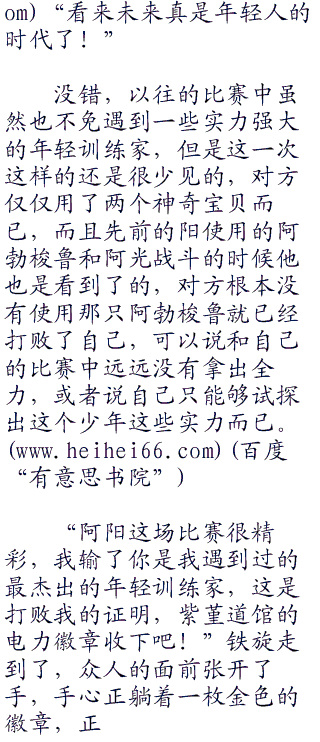 om) “看来未来真是年轻人的
时代了！”
没错，以往的比赛中虽
然也不免遇到一些实力强大
的年轻训练家，但是这一次
这样的还是很少见的，对方
仅仅用了两个神奇宝贝而
已，而且先前的阳使用的阿
勃梭鲁和阿光战斗的时候他
也是看到了的，对方根本没
有使用那只阿勃梭鲁就已经
打败了自己，可以说和自己
的比赛中远远没有拿出全
力，或者说自己只能够试探
出这个少年这些实力而已。
(www.heihei66.com)(百度
“有意思书院”)
“阿阳这场比赛很精
彩，我输了你是我遇到过的
最杰出的年轻训练家，这是
打败我的证明，紫堇道馆的
电力徽章收下吧！”铁旋走
到了，众人的面前张开了
手，手心正躺着一枚金色的
徽章，正